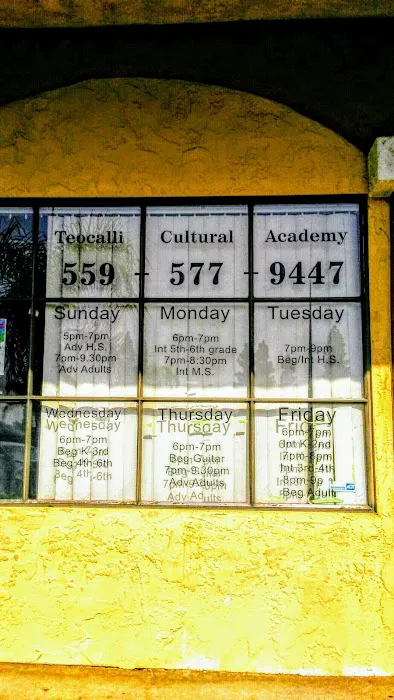 Teocalli Cultural Academy
559 - 577 - 9447
Sunday
5pm-7pm
Adv H.S.
7pm-9.30pm
Adv Adults
Monday
6pm-7pm
Int 5th-6th grade
7pm-8.30pm
Int M.S.
Tuesday
7pm-9pm
Beg/Int H.S.
Wednesday
6pm-7pm
Beg K-3rd
Beg 4th-6th
Thursday
6pm-7pm
Beg Guitar
7pm-9:30pm
Adv Adults
Friday
6pm-7pm
Int K-2nd
7pm-8pm
Int 3rd-4th
8pm-9p
Beg Adult